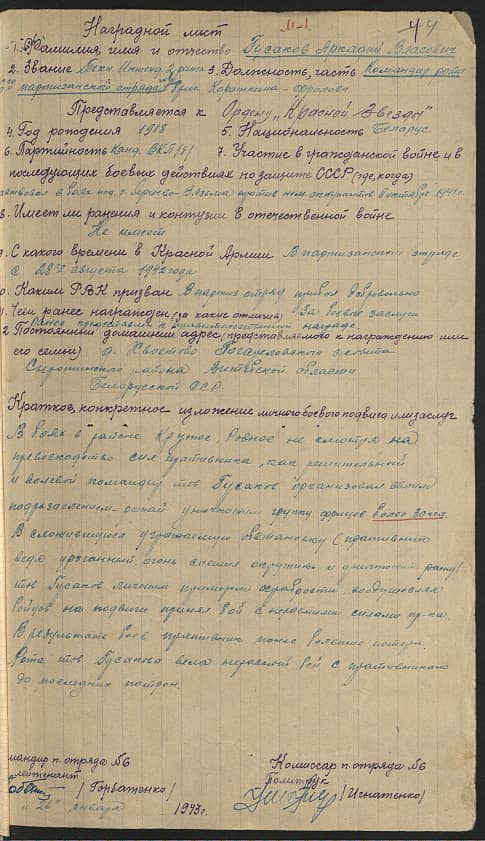 44
Наградной лист
1. Фамилия, имя и отчество Гусаков Аркадий Власович
2. Звание Техн. Интенд. 2 ранга 3. Должность, часть Командир роты
партизанского отряда
Представляется к Ордену „Красной Звезды"
4. Год рождения 1918 5. Национальность Белорус
6. Партийность Канд. ВКП/б/ 7. Участие в гражданской войне и в
последующих боевых действиях по защите СССР (где, когда)
в боях под г. Ярцево-Вязьма против нем. оккупантов в октябре 1941г.
8. Имеет ли ранения и контузии в отечественной войне
Не имеет
9. С какого времени в Красной Армии В партизанском отряде
с 28го августа 1942 года
10. Каким РВК призван В партиз отряд прибыл добровольно
11. Чем ранее награжден (за какие отличия) За боевые заслуги
Ранее представлен к правительственной награде.
12 Постоянный домашний адрес, представляемого к награждению или
его семьи) д. Хвостово сельсовета
Сиротинского района Витебской области
Белорусской ССР.
Краткое, конкретное изложение личного боевого подвига или заслуг
В боях в районе Крупое, Ровное не смотря на
превосходство сил противника, как решительный
и волевой командир тов Гусаков организовал своим
подразделением ротой уничтожил группу фрицев более 30 чел.
В сложившуюся угрожаемую обстановку (противник
ведя ураганный огонь спешил окружить и уничтожить роту)
тов Гусаков личным примером храбрости воодушевляя
бойцов на подвиги принял бой с неравными силами пр-ка.
В результате боев противник понес большие потери.
Рота тов. Гусакова вела неравный бой с противником
до последних патрон.
мандир п. отряда №6 Комиссар п. отряда №6
лейтенант Политрук
/Горбатенко/ /Игнатенко/
„26" января 1943г.